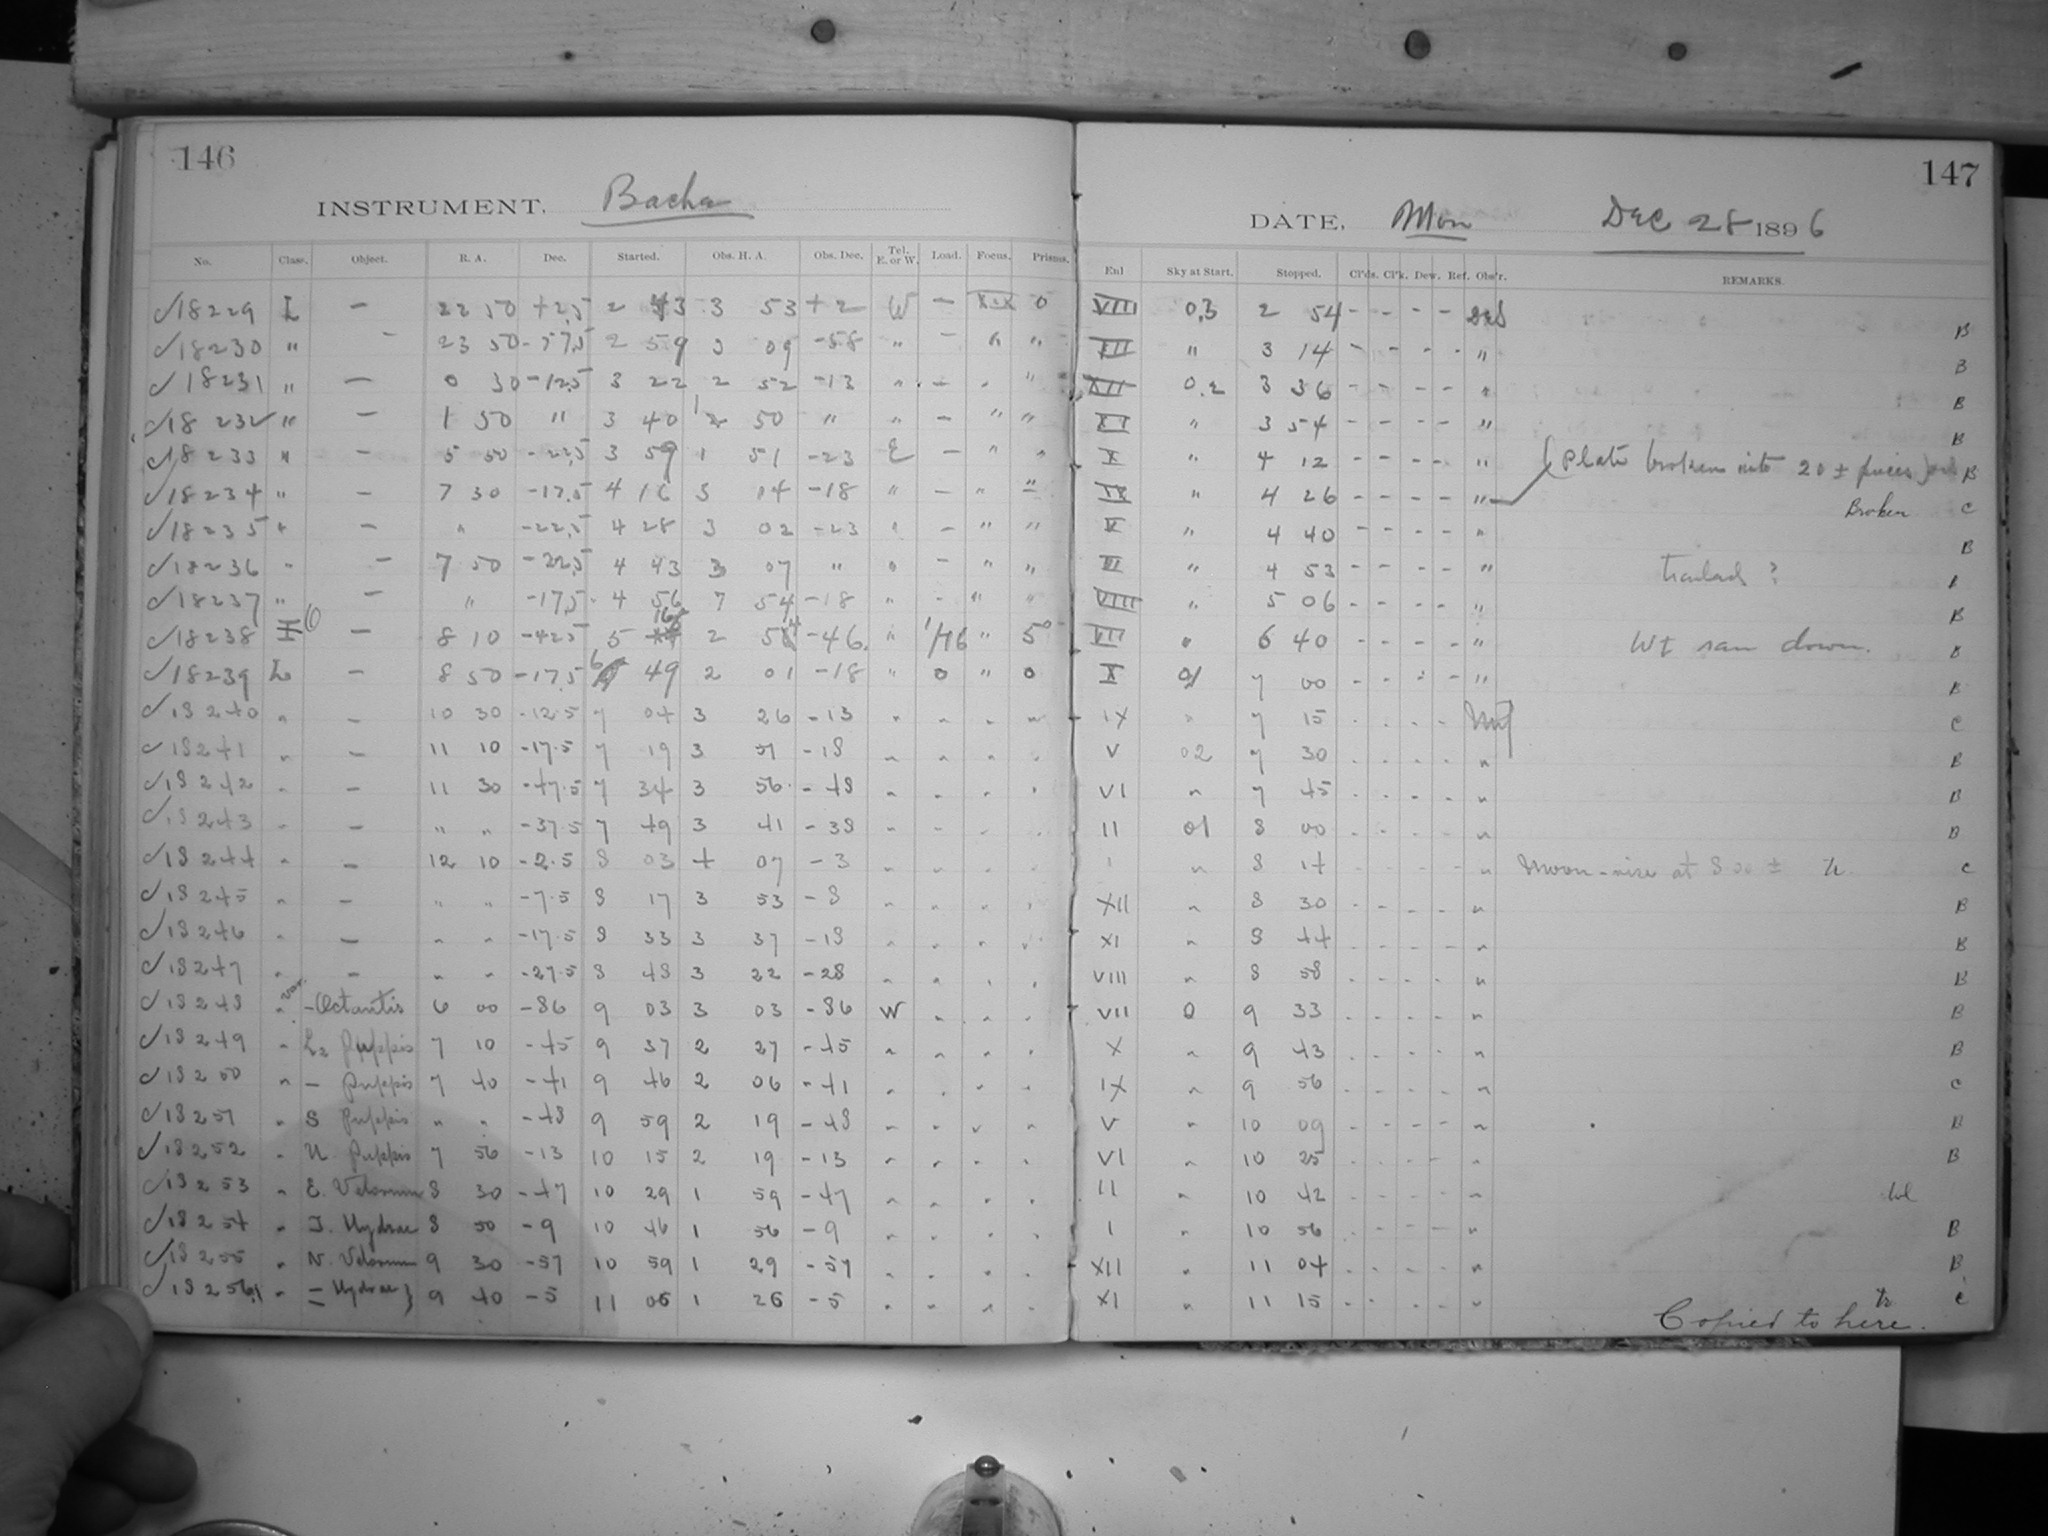 146
147
INSTRUMENT. Bache
DATE. Mon Dec 28 1896
No. Class. Object. R. A. Dec. Started. Obs. H. A. Obs. Dec. Tel. E. or W. Load. Focus. Prisms. Enl Sky at Start. Stopped. Cl'ds. Cl'k. Dew. Ref. Obs'r. REMARKS.
18229 L — 22 50 +2.5 2 43 3 53 +2 W — XIX 0 VIII 03 2 54 - - - - B
18230 " - 23 50 -57.5 2 59 3 09 -58 " - " " III " 3 14 - - - - " B
18231 " — 0 30 -12.5 3 22 2 52 -13 " - " " XII 0.2 3 36 - - - - " B
18232 " — 1 50 " 3 40 50 " " - " " XI " 3 54 - - - - " B
18233 " - 5 50 -22.5 3 59 1 51 -23 E - " " X " 4 12 - - - - " Plate broken into 20 ± pieces B
18234 " - 7 30 -17.5 4 16 3 14 -18 " - " " IX " 4 26 - - - - " Broken C
18235 " - " -22.5 4 28 3 02 -23 " - " " V " 4 40 - - - - " B
18236 " - 7 50 -22.5 4 43 3 07 " " - " " VI " 4 53 - - - - " trailed ?
18237 " - " -17.5 4 56 7 54 -18 " - " " VIII " 5 06 - - - - " B
18238 — 8 10 -42.5 5 16 2 54 -46 " 1/16 " 5° VII " 6 40 - - - - " Wt ran down. B
18239 L - 8 50 -17.5 6 49 2 01 -18 " 0 " 0 X 01 7 00 - - - - " B
18240 " - 10 30 -12.5 7 04 3 26 -13 " " " " IX " 7 15 - - - - C
18241 " - 11 10 -17.5 7 19 3 51 -18 " " " " V 02 7 30 - - - - " B
18242 " - 11 30 -47.5 7 34 3 56 -48 " " " " VI " 7 45 - - - - " B
18243 " - " " -37.5 7 49 3 41 -38 " " " " II 01 8 00 - - - - " B
18244 " - 12 10 -2.5 8 03 4 07 -3 " " " " I " 8 14 - - - - " Moon-rise at 8 00 ± C
18245 " - " " -7.5 8 17 3 53 -8 " " " " XII " 8 30 - - - - " B
18246 " - " " -17.5 8 33 3 37 -18 " " " " XI " 8 44 - - - - " B
18247 " - " " -27.5 8 48 3 22 -28 " " " " VIII " 8 58 - - - - " B
18248 " var. - Octantis 6 00 -86 9 03 3 03 -86 W " " " VII 0 9 33 - - - - " B
18249 " L2 Puppis 7 10 -45 9 37 2 27 -45 " " " " X " 9 43 - - - - " B
18250 " - Puppis 7 40 -41 9 46 2 06 -41 " " " " IX " 9 56 - - - - " C
18251 " S Puppis " " -48 9 59 2 19 -48 " " " " V " 10 09 - - - - " B
18252 " U. Puppis 7 56 -13 10 15 2 19 -13 " " " " VI " 10 25 - - - - " B
18253 " E. Velorum 8 30 -47 10 29 1 59 -47 " " " " II " 10 42 - - - - "
18254 " T. Hydrae 8 50 -9 10 46 1 56 -9 " " " " I " 10 56 - - - - " B
18255 " N. Velorum 9 30 -57 10 59 1 29 -57 " " " " XII " 11 04 - - - - " B
18256 " - Hydrae 9 40 -5 11 06 1 26 -5 " " " " XI " 11 15 - - - - " C
Copied to here.